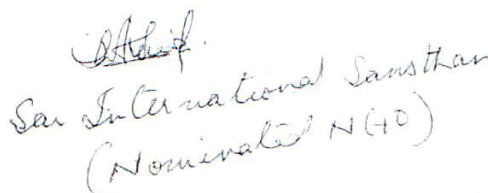 Sai International Sansthan
(Nominated NGO)